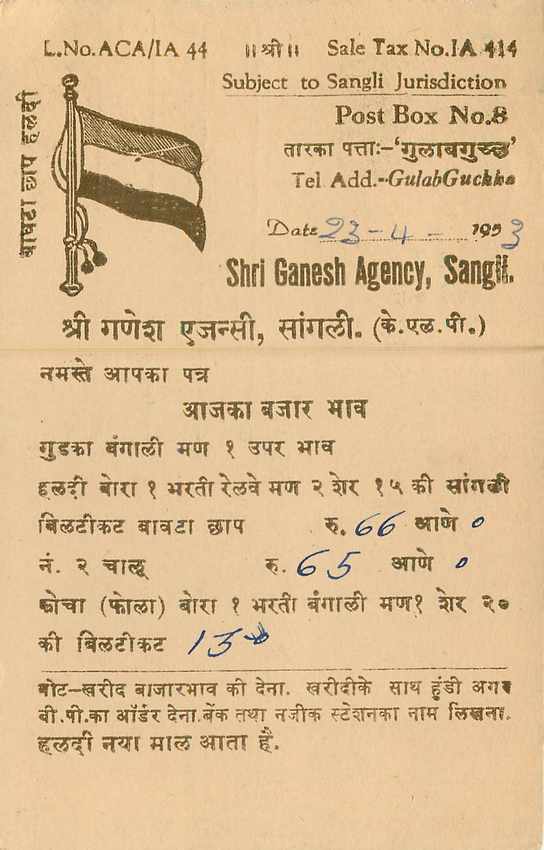 L.No.ACA/IA 44 ॥श्री॥ Sale Tax No.IA 414
Subject to Sangli Jurisdiction
Post Box No.8
तारका पत्ताः-‘गुलाबगुच्छ’
Tel Add.-GulabGuchha
बावटा छाप हलदी
Date 23-4- 1953
Shri Ganesh Agency, Sangli.
श्री गणेश एजन्सी, सांगली. (के.एल.पी.)
नमस्ते आपका पत्र
आजका बजार भाव
गुडका बंगाली मण १ उपर भाव
हलदी बोरा १ भरती रेलवे मण २ शेर १५ की सांगली
बिलटीकट बावटा छाप रु. 66 आणे 0
नं. २ चालू रु. 65 आणे 0
कोचा (फोला) बोरा १ भरती बंगाली मण१ शेर २०
की बिलटीकट
नोट-खरीद बाजारभाव की देना. खरीदीके साथ हुंडी अगर
बी.पी.का ऑर्डर देना.बेंक तथा नजीक स्टेशनका नाम लिखना.
हलदी नया माल आता है.